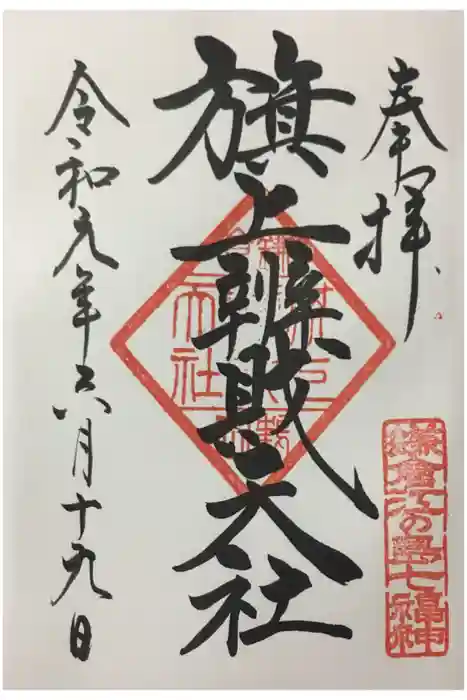 奉拝
鎌倉江の島七福神
旗上辨財天社
令和元年六月十九日